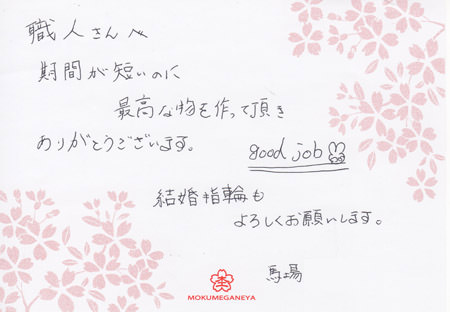 職人さんへ
期間が短いのに
最高な物を作って頂き
ありがとうございます。
good job
結婚指輪も
よろしくお願いします。
馬場
MOKUMEGANEYA